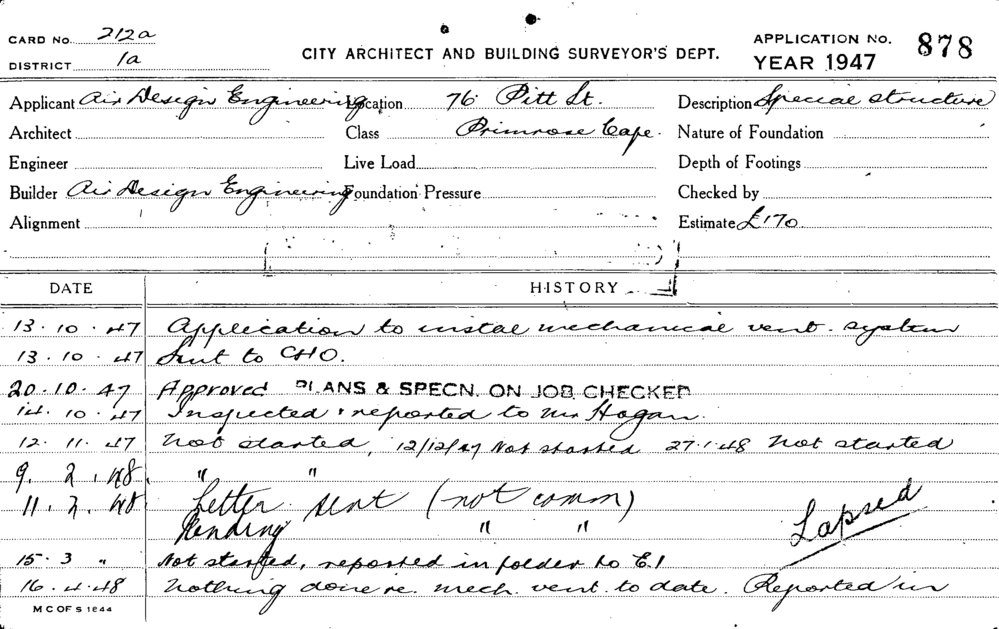 CARD No. 212a
DISTRICT 1a
CITY ARCHITECT AND BUILDING SURVEYOR'S DEPT.
APPLICATION No. 878
YEAR 1947
Applicant Air Design Engineering Location 76 Pitt St. Description Special structure
Architect Class Primrose Cafe. Nature of Foundation
Engineer Live Load Depth of Footings
Builder Air Design Engineering Foundation Pressure Checked by
Alignment Estimate £170.
DATE HISTORY
13.10.47 Application to instal mechanical vent. system
13.10.47 Sent to CHO.
20.10.47 Approved PLANS & SPECN. ON JOB CHECKED
14.10.47 Inspected & reported to Mr Hogan.
12.11.47 Not started, 12/12/47 Not started 27.1.48 Not started
9.2.48. " "
11.2.48 Letter sent (not comm)
Pending " "
Lapsed
15.3 " Not started, reported in folder to E.I
16.4.48 Nothing done re. mech. vent. to date. Reported in
M C OF S 1844